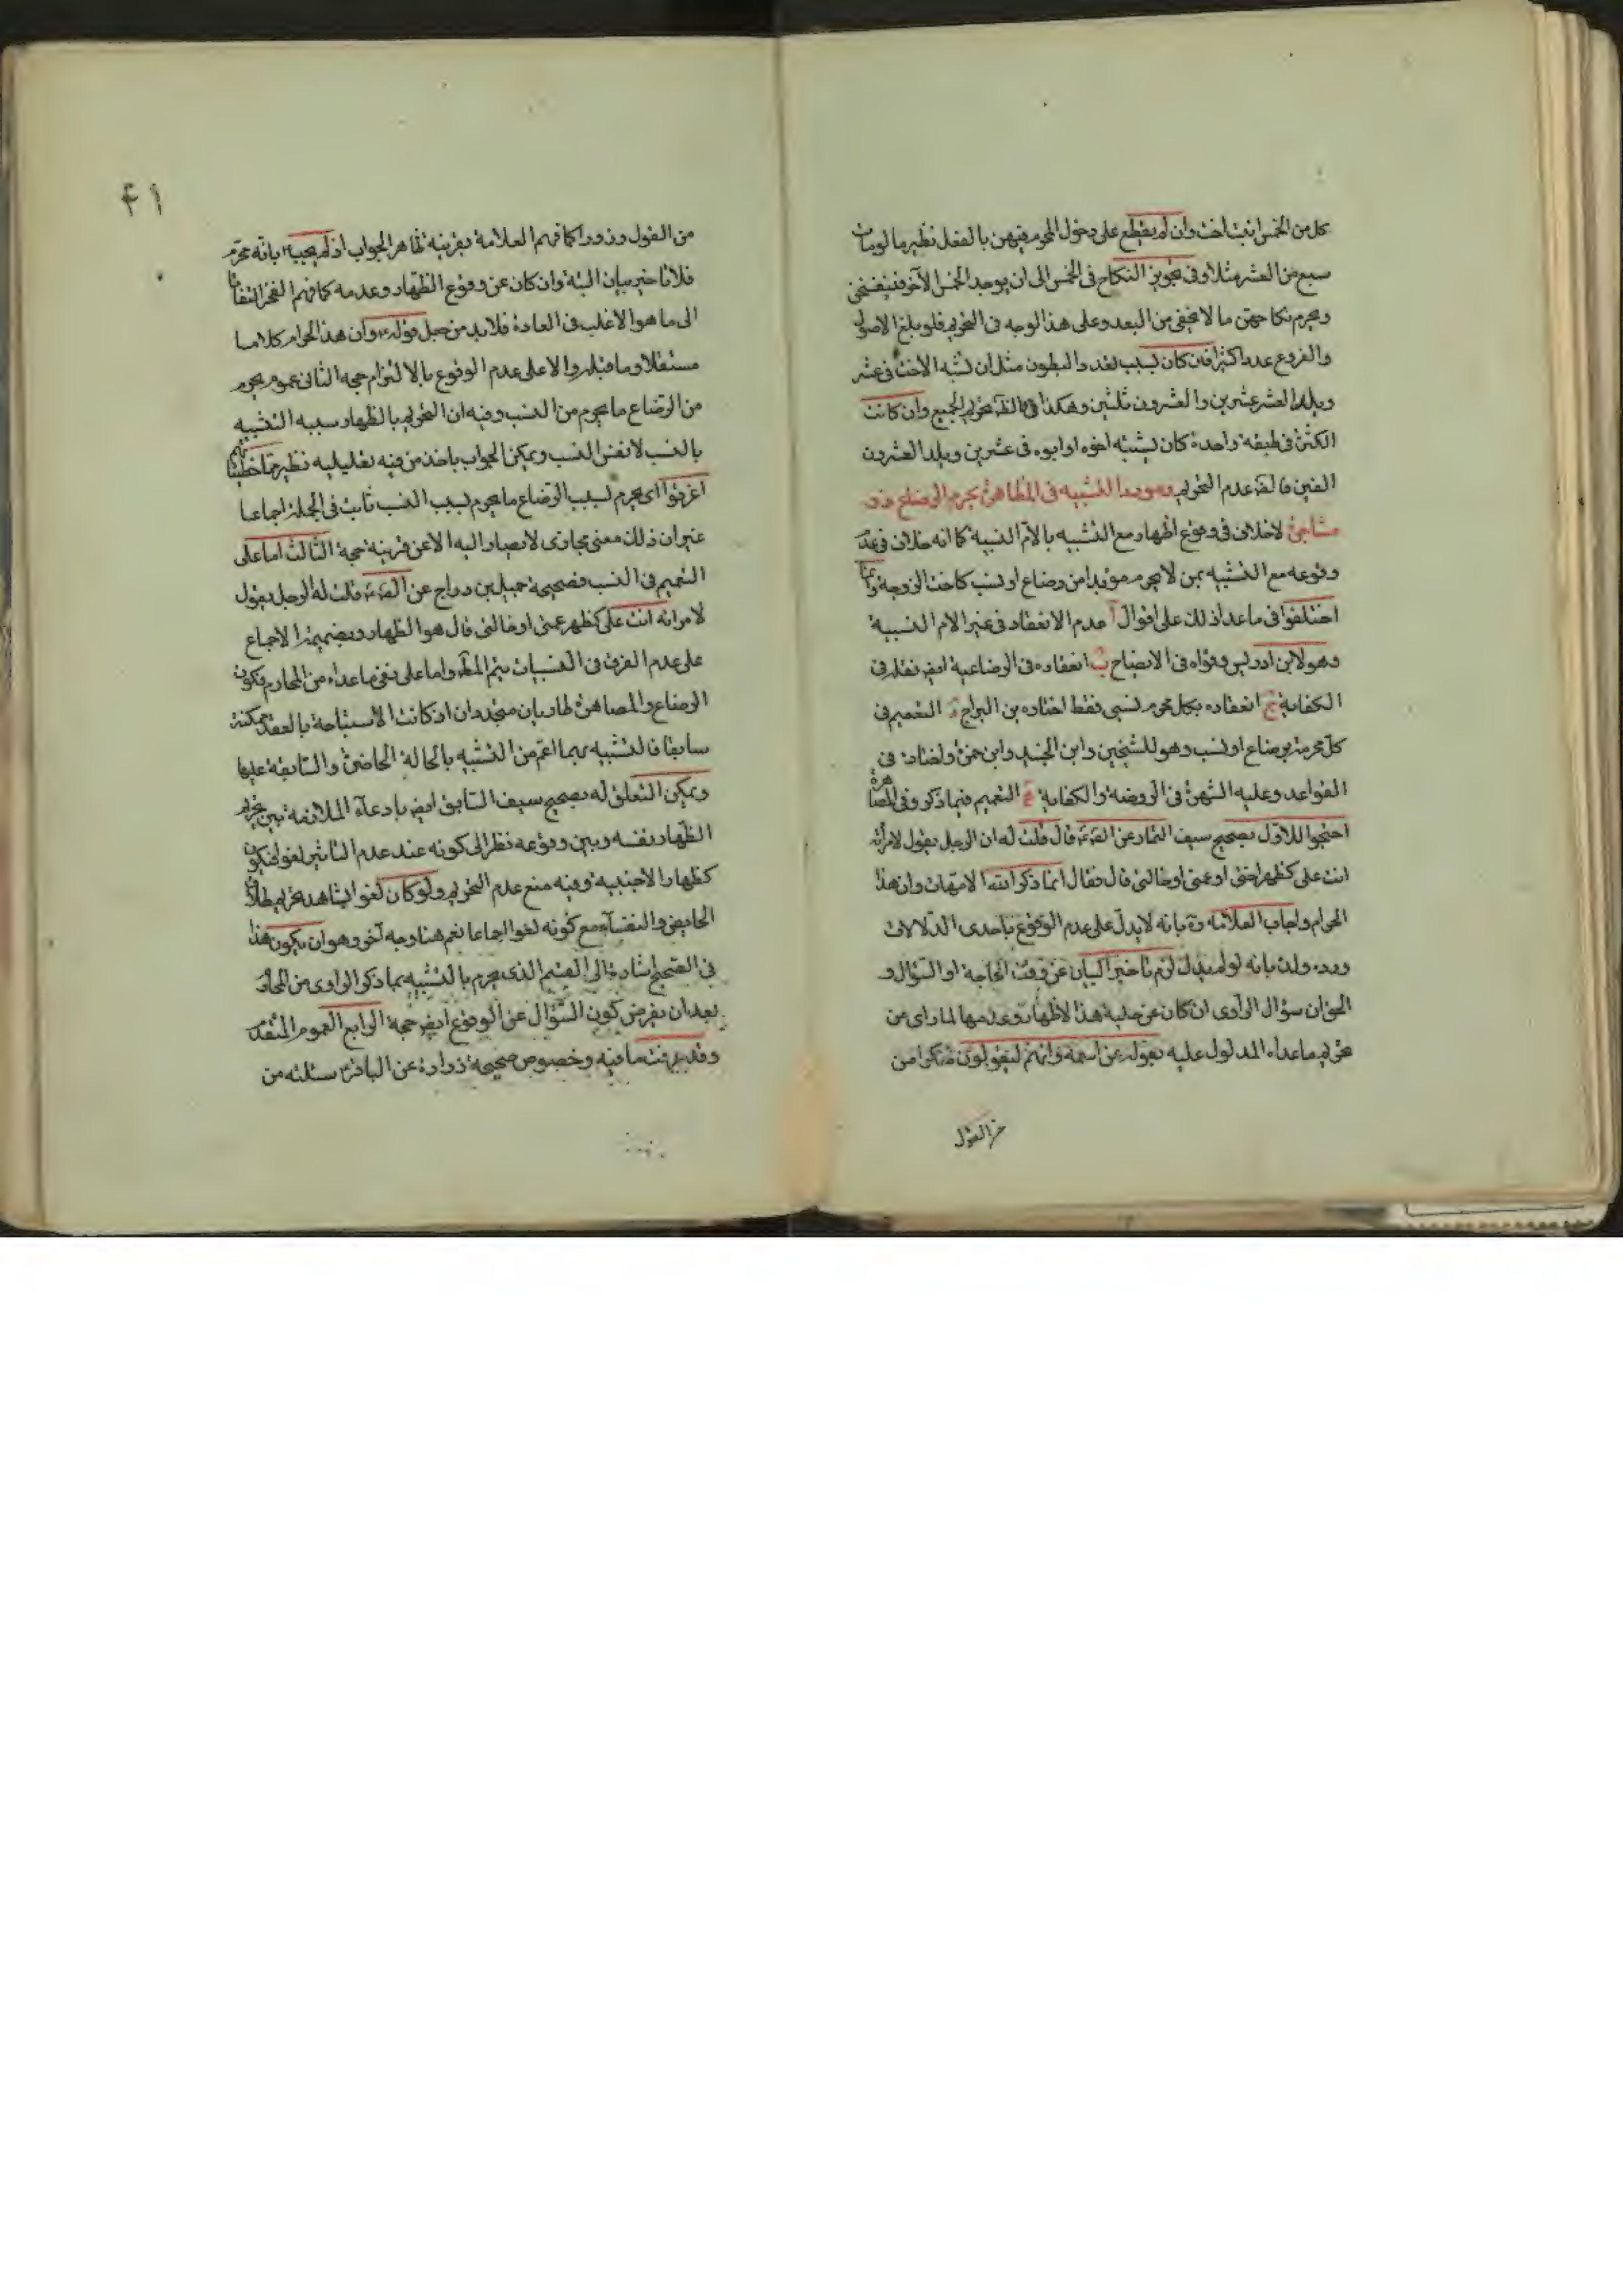 كل من الخمس انبت اخت وان لم يقطع على دخول المحرم فيهن بالفعل نظير ما لو مات
سبع من العشر مثلا وفي تجويز النكاح في الخمس الى ان يوجد الخمس الآخر
ويحرم نكاحهن ما لا يخفى من البعد وعلى هذا الوجه في التحريم فلو بلغ الاصول
والفروع عددا كثيرا فان كان بسبب تعدد البطون مثل ان تشبه الاخت في عشر
ويلد العشر عشرين والعشرون ثلثين وهكذا فالظ تحريم الجميع وان كانت
الكثرة في طبقة واحدة كان يشتبه اخوه او ابوه في عشرين ويلد العشرون
الفين فالظ عدم التحريم التشبيه في المظاهرة بمحرم الرضاع
لا خلاف في وقوع الظهار مع التشبيه بالام النسبية كما انه خلاف في عدم
وقوعه مع التشبيه بمن لا يحرم مؤبدا من رضاع او نسب كاخت الزوجة وانما
اختلفوا في ما عدا ذلك على اقوال آ عدم الانعقاد في غير الام النسبية
وهو لابن ادريس وقواه في الايضاح ب انعقاده في الرضاعية ايض نقله في
الكفاية ج انعقاده بكل محرم نسبي فقط اختاره بن البراج د التعميم في
كل محرمة برضاع او نسب وهو للشيخين وابن الجنيد وابن حمزة واختاره في
القواعد وعليه الشهرة في الروضة والكفاية التعميم فيما ذكر وفي المصاهرة
احتجوا للاول بصحيح سيف التمار عن الص قال قلت له ان الرجل يقول لامرأته
انت علي كظهر اختي او عمتي او خالتي قال فقال انما ذكر الله الامهات وان هذا
الحرام واجاب العلامة ره بانه لا يدل على عدم الوقوع باحدى الدلالات
ورده ولده بانه لو لم يدل لزم تأخير البيان عن وقت الحاجة او السؤال و
الحق ان سؤال الراوي ان كان عن حلية هذا الاظهار وعدمها لما راى من
تحريم ما عداه المدلول عليه بقوله عن اسمه وانهم ليقولون منكرا من
من القول
۴۱
من القول وزورا كما فهم العلامة بقرينة ظاهر الجواب اذ لم يجبه بانه محرم
فلا تاخير بيان البتة وان كان عن وقوع الظهار وعدمه كما فهم الفخر التفاتا
الى ما هو الاغلب في العادة فلا بد من جعل قوله وان هذا الحرام كلاما
مستقلا وما قبله دالا على عدم الوقوع بالالتزام حجة الثاني عموم يحرم
من الرضاع ما يحرم من النسب وفيه ان التحريم بالظهار سببه التشبيه
بالنسب لا نفس النسب ويمكن الجواب باخذ من فيه تعليلية نظير مما خطيئاتهم
اغرقوا اي يحرم بسبب الرضاع ما يحرم بسبب النسب ثابت في الجملة اجماعا
غير ان ذلك معنى مجازي لا يصار اليه الا عن قرينة حجة الثالث اما على
التعميم في النسب فصحيحة جميل بن دراج عن الص قلت له الرجل يقول
لامراته انت علي كظهر عمتي او خالتي قال هو الظهار وبضميمة الاجماع
على عدم الفرق في النسبيات يتم المط واما على نفي ما عداه من المحارم بكون
الرضاع والمصاهرة طاريان متجددان اذ كانت الاستباحة بالعقد ممكنة
سابقا فالتشبيه بهما اعم من التشبيه بالحالة الحاضرة والسابقة عليها
ويمكن التعلق له بصحيح سيف السابق ايض بادعاء الملازمة بين تحريم
الظهار نفسه وبين وقوعه نظرا الى كونه عند عدم التاثير لغوا فيكون
كظهار الاجنبية وفيه منع عدم التحريم ولو كان لغوا يشاهد تحريم طلاق
الحايض والنفساء مع كونه لغوا اجماعا نعم هنا وجه آخر وهو ان يكون هذا
في الصحيح اشارة الى القسم الذي يحرم بالتشبيه بما ذكر الراوي من المحارم
بعد ان يفرض كون السؤال عن الوقوع ايض حجة الرابع العموم المتقدم
وقد عرفت ما فيه وخصوص صحيحة زرارة عن الباقر سئلته من